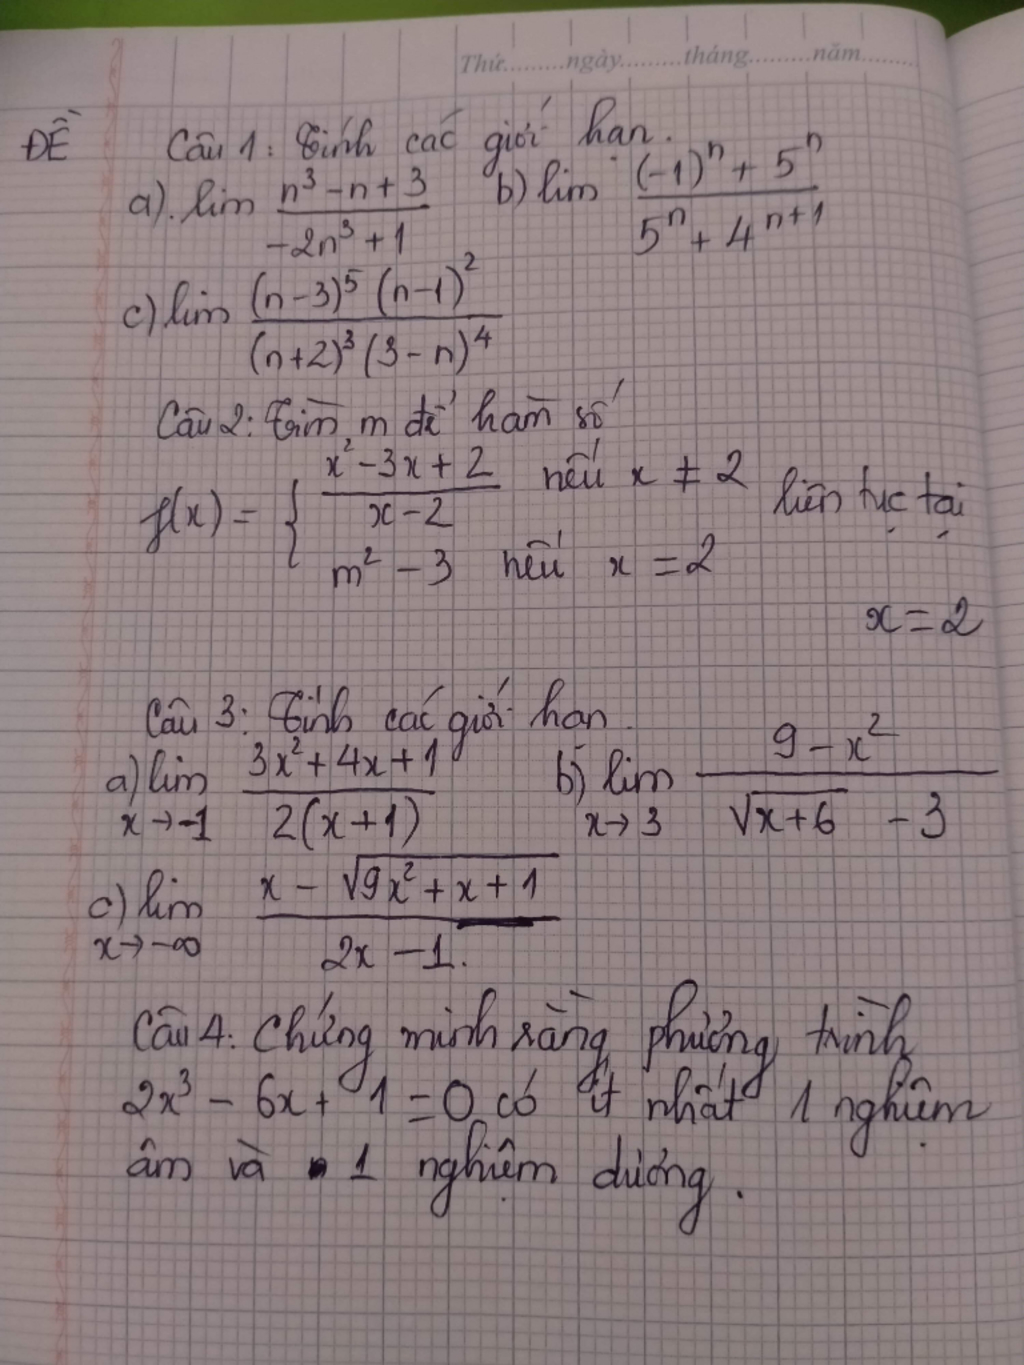 Thứ.........ngày.........tháng.........năm.........
ĐỀ Câu 1: Tính các giới hạn.
a). lim (n³ - n + 3)/(-2n³ + 1) b) lim ((-1)ⁿ + 5ⁿ)/(5ⁿ + 4ⁿ⁺¹)
c) lim ((n-3)⁵ (n-1)²)/((n+2)³ (3-n)⁴)
Câu 2: Tìm m để hàm số
f(x) = { (x² - 3x + 2)/(x - 2) nếu x ≠ 2 liên tục tại
m² - 3 nếu x = 2
x = 2
Câu 3: Tính các giới hạn.
a) lim x→-1 (3x² + 4x + 1)/(2(x+1)) b) lim x→3 (9 - x²)/(√(x+6) - 3)
c) lim x→-∞ (x - √(9x² + x + 1))/(2x - 1).
Câu 4: Chứng minh rằng phương trình
2x³ - 6x + 1 = 0 có ít nhất 1 nghiệm
âm và 1 nghiệm dương.